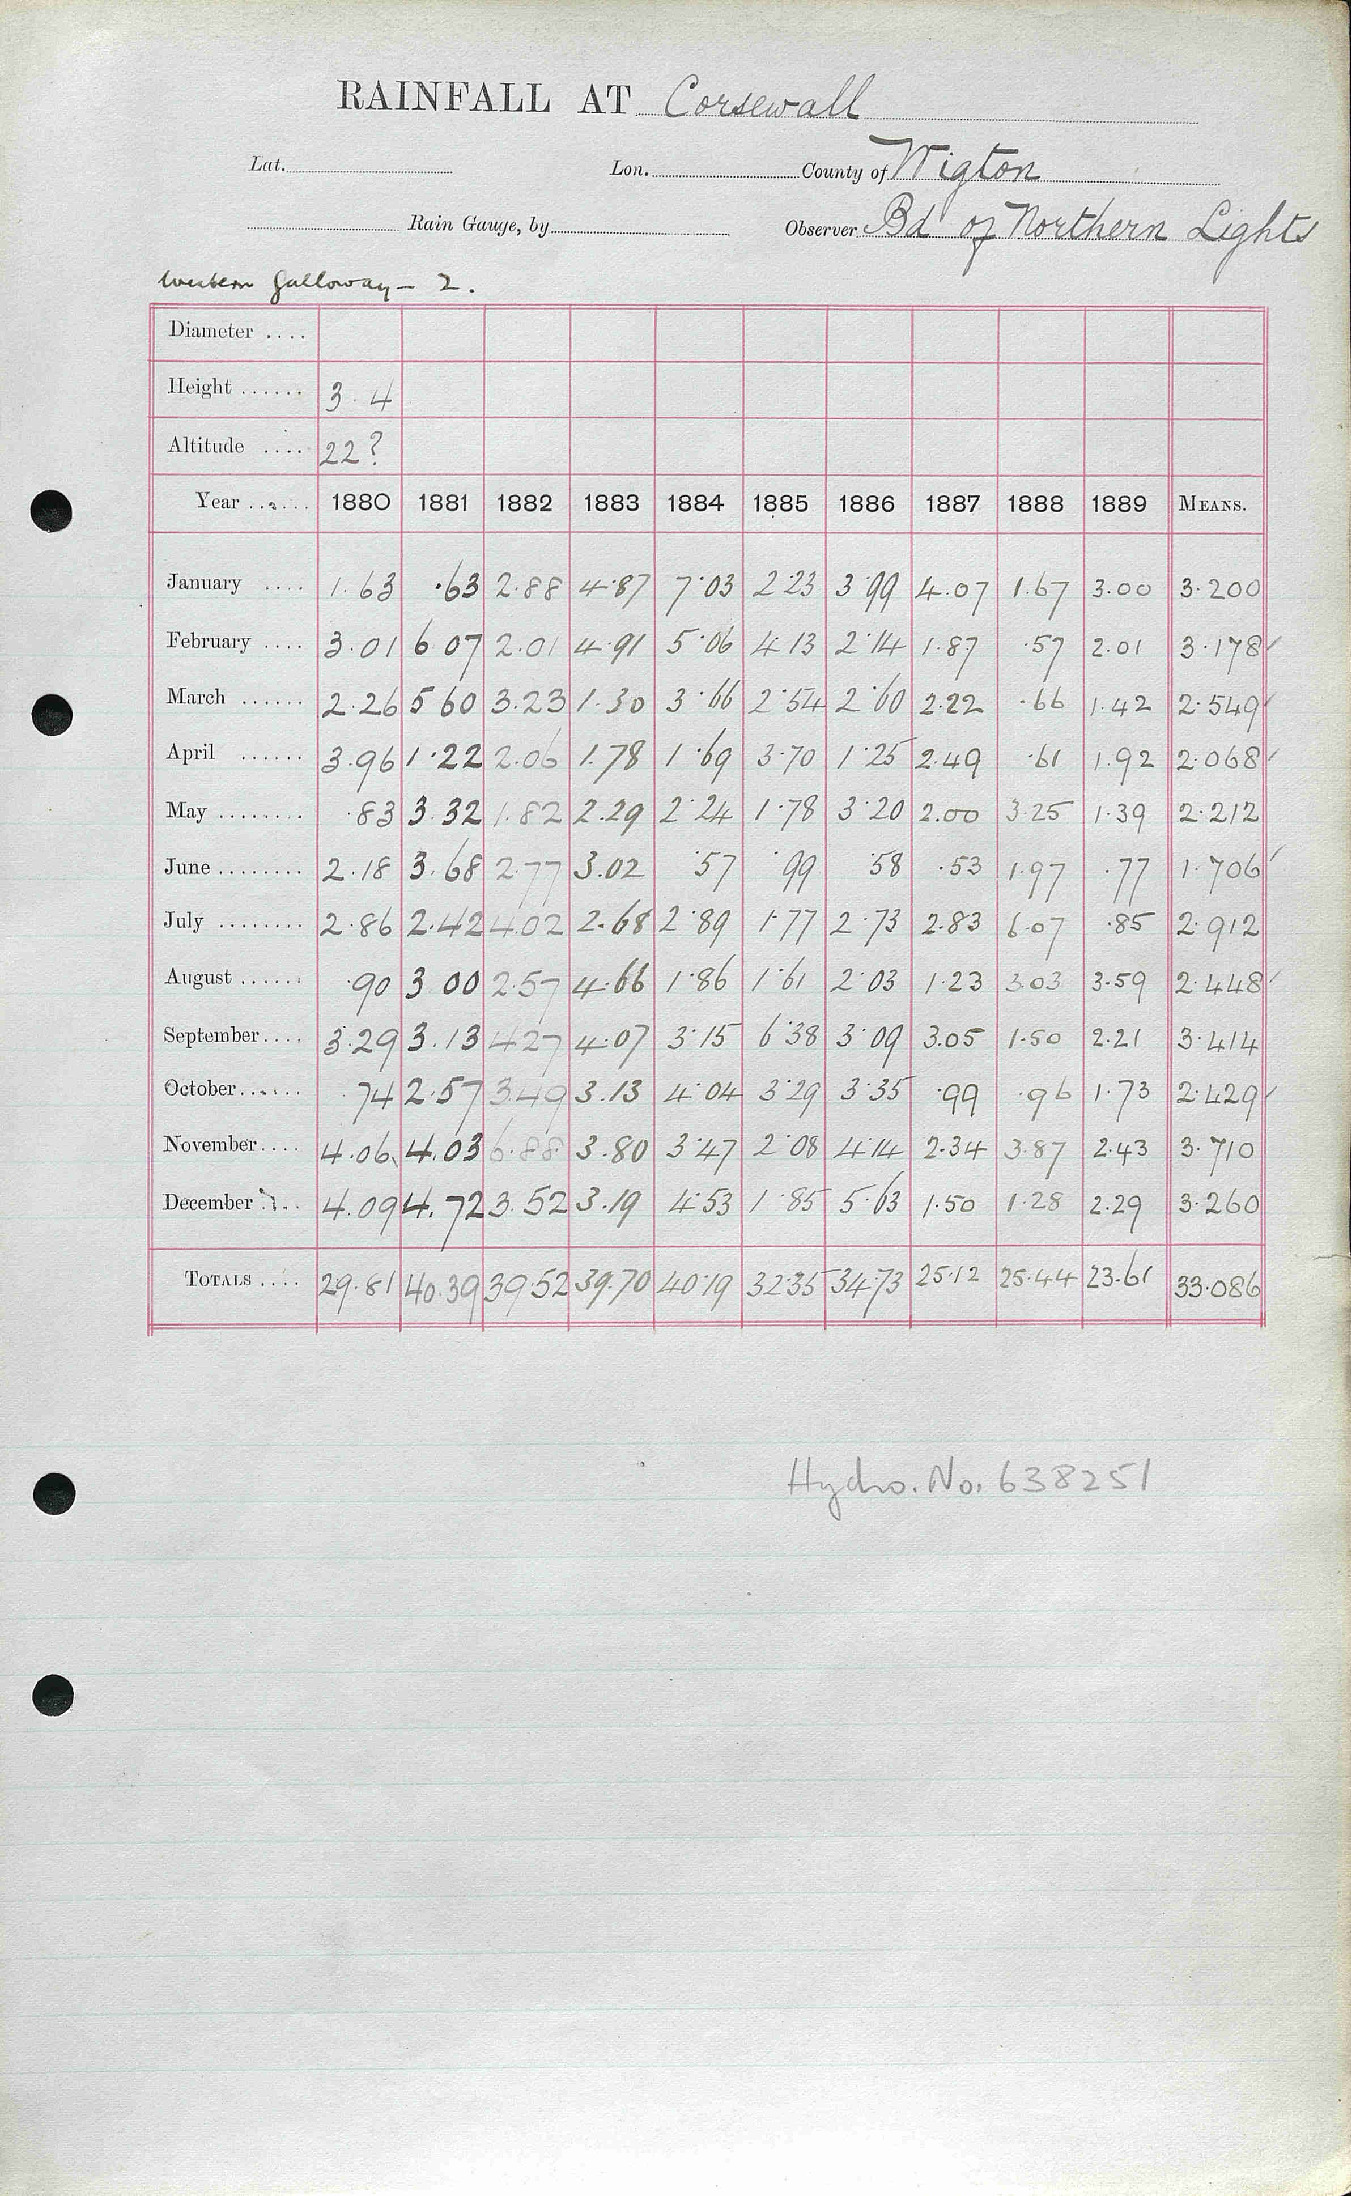 RAINFALL AT Corsewall
Lat. Lon. County of Wigton
Rain Gauge, by Observer Bd of Northern Lights
Western Galloway - 2.
Diameter ....
Height ...... 3 . 4
Altitude .... 22?
Year ...... 1880 1881 1882 1883 1884 1885 1886 1887 1888 1889 MEANS.
January .... 1.63 .63 2.88 4.87 7.03 2.23 3.99 4.07 1.67 3.00 3.200
February .... 3.01 6.07 2.01 4.91 5.06 4.13 2.14 1.87 .57 2.01 3.178
March ...... 2.26 5.60 3.23 1.30 3.66 2.54 2.60 2.22 .66 1.42 2.549
April ...... 3.96 1.22 2.06 1.78 1.69 3.70 1.25 2.49 .61 1.92 2.068
May ........ .83 3.32 1.82 2.29 2.24 1.78 3.20 2.00 3.25 1.39 2.212
June ........ 2.18 3.68 2.77 3.02 .57 .99 .58 .53 1.97 .77 1.706
July ........ 2.86 2.42 4.02 2.68 2.89 1.77 2.73 2.83 6.07 .85 2.912
August ...... .90 3.00 2.57 4.66 1.86 1.61 2.03 1.23 3.03 3.59 2.448
September .... 3.29 3.13 4.27 4.07 3.15 6.38 3.09 3.05 1.50 2.21 3.414
October ...... .74 2.57 3.49 3.13 4.04 3.29 3.35 .99 .96 1.73 2.429
November .... 4.06 4.03 6.88 3.80 3.47 2.08 4.14 2.34 3.87 2.43 3.710
December .... 4.09 4.72 3.52 3.19 4.53 1.85 5.63 1.50 1.28 2.29 3.260
TOTALS .... 29.81 40.39 39.52 39.70 40.19 32.35 34.73 25.12 25.44 23.61 33.086
Hydro. No. 638251